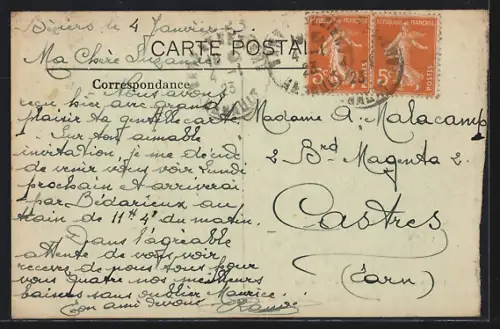 Béziers le 4 Janvier
CARTE POSTALE
Ma Chère Suzanne
Correspondance
Nous avons
reçu hier avec grand
plaisir ta gentille carte
Sur ton aimable
invitation, je me décide
de venir vous voir lundi
prochain et arriverai
par Bédarieux au
train de 11h 4' du matin.
Dans l'agréable
attente de vous voir
recevez de nous tous pour
vous quatre nos meilleurs
baisers sans oublier Maurice.
Ton ami dévoué
RÉPUBLIQUE FRANÇAISE
5c
POSTES
RÉPUBLIQUE FRANÇAISE
5c
POSTES
Madame A. Malacamp
2 Brd Magenta 2
Castres
(Tarn)